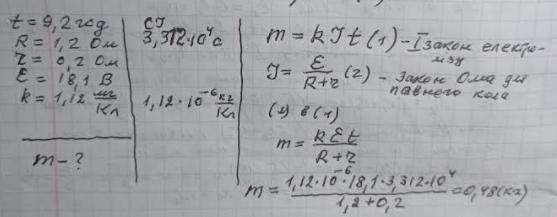 t = 9,2 год
R = 1,2 Ом
r = 0,2 Ом
ℰ = 18,1 В
k = 1,12 мг/Кл
m - ?
СІ
3,312·10⁴ с
1,12·10⁻⁶ кг/Кл
m = kJt (1) - I закон електро-
лізу
J = ℰ/(R+r) (2) - Закон Ома для
повного кола
(2) в (1)
m = kℰt/(R+r)
m = (1,12·10⁻⁶·18,1·3,312·10⁴)/(1,2+0,2) = 0,48 (кг)